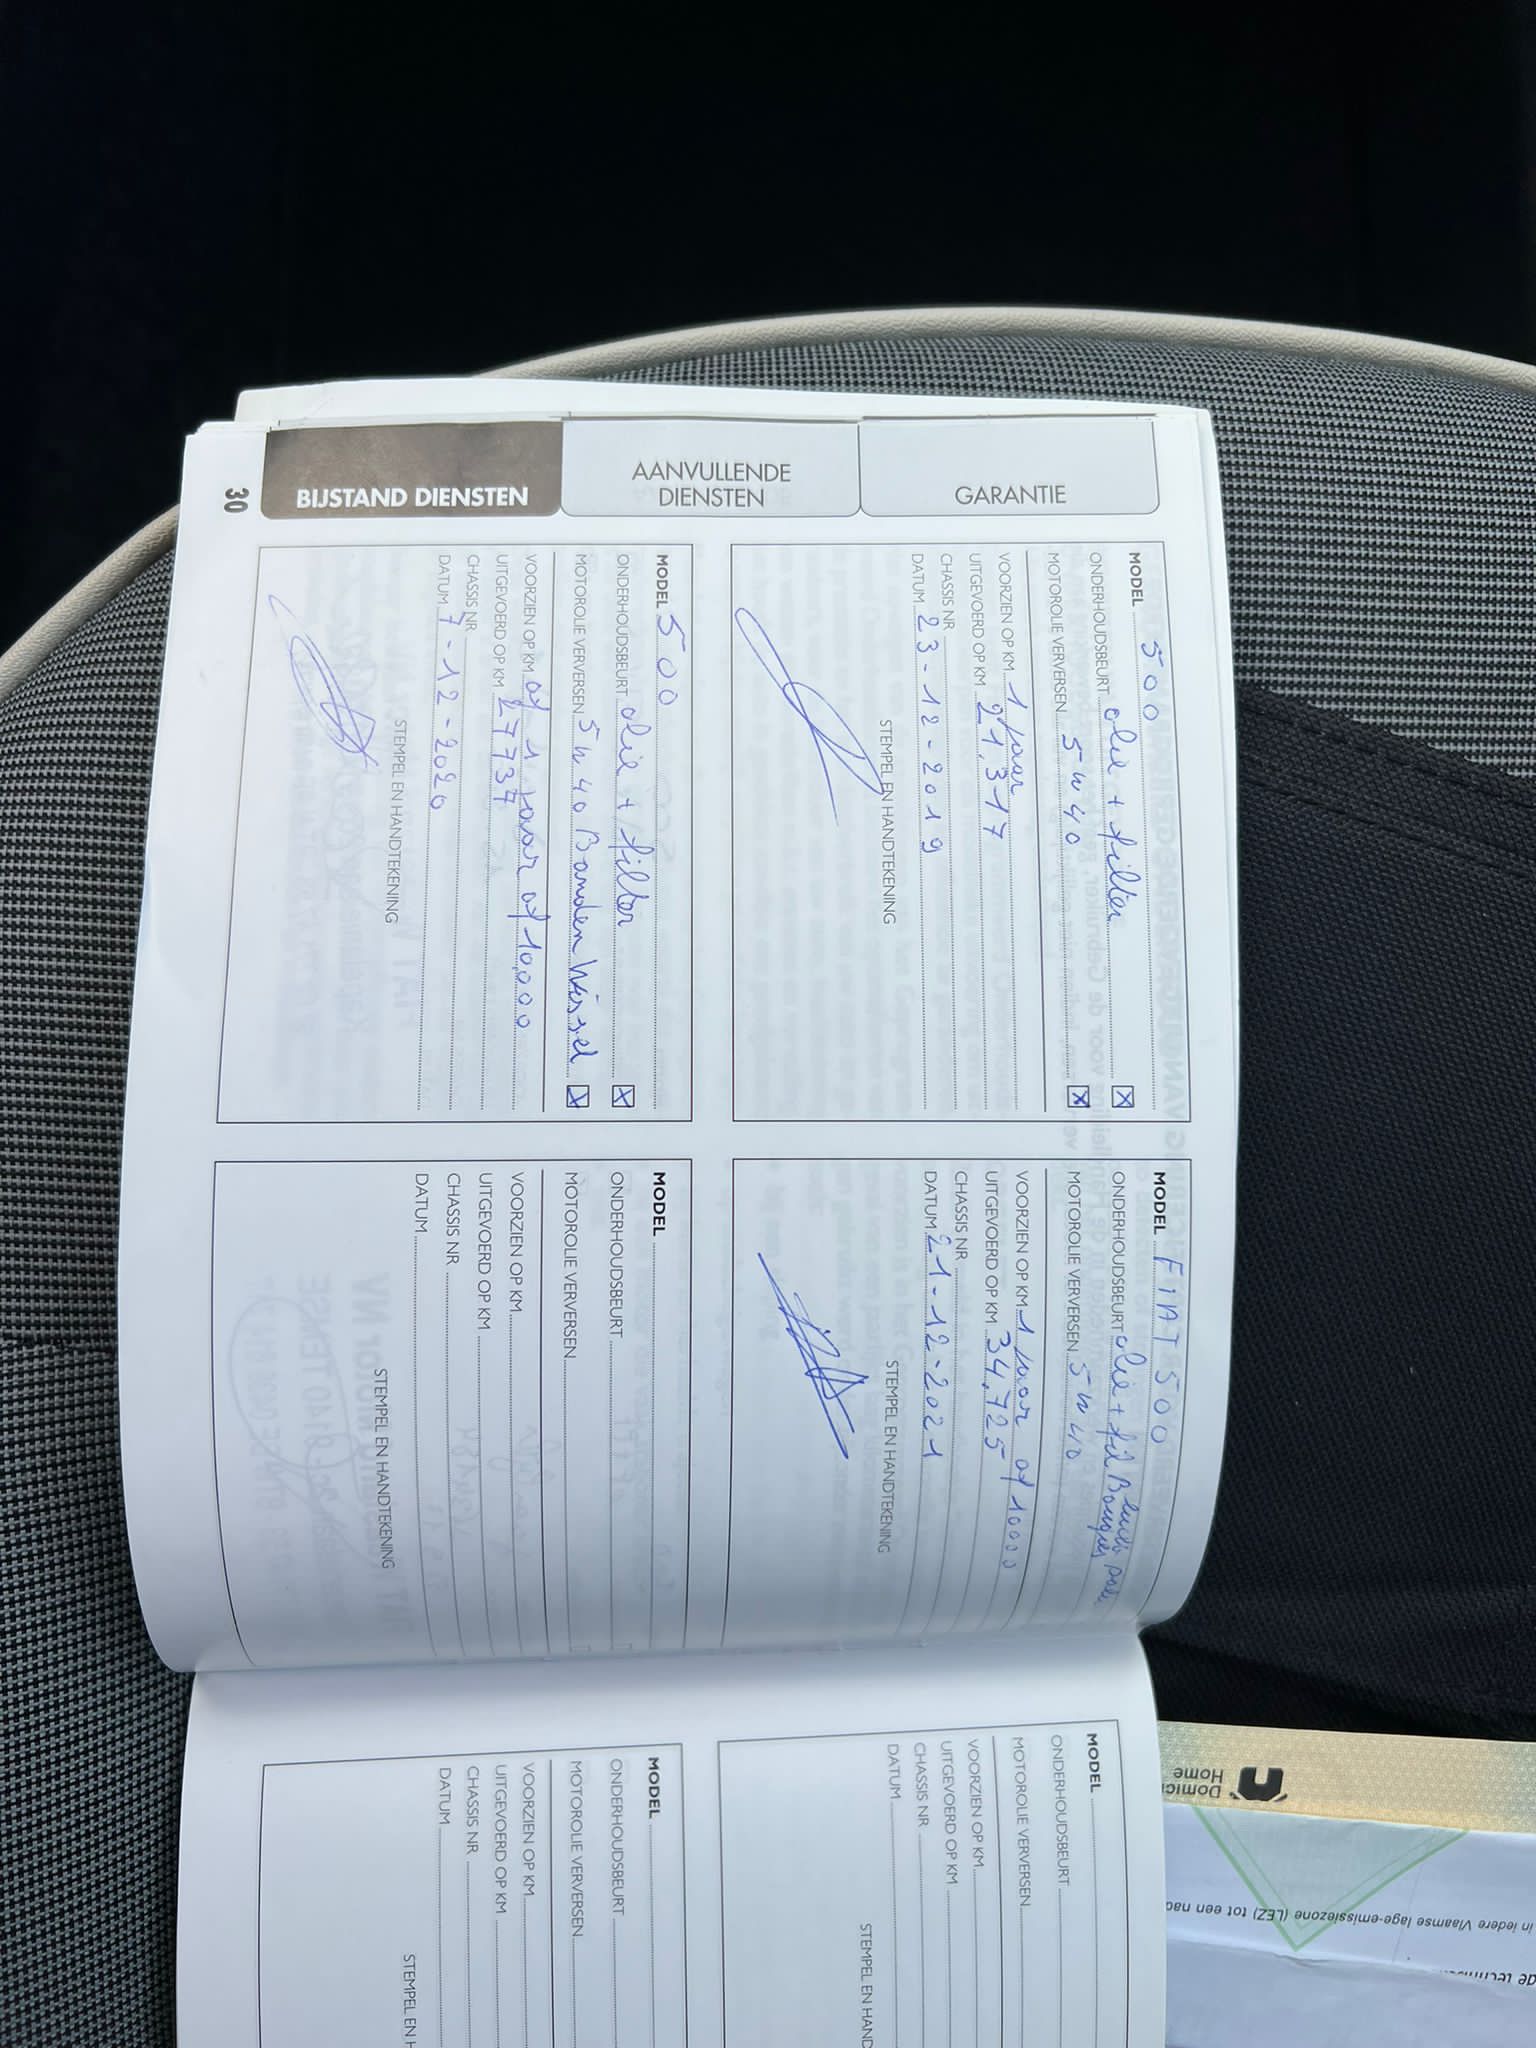 30
BIJSTAND DIENSTEN
AANVULLENDE
DIENSTEN
GARANTIE
MODEL 500
ONDERHOUDSBEURT olie + filter
MOTOROLIE VERVERSEN 5 w 40
VOORZIEN OP KM 1 jaar
UITGEVOERD OP KM 21,317
CHASSIS NR
DATUM 23-12-2019
STEMPEL EN HANDTEKENING
MODEL 500
ONDERHOUDSBEURT olie + filter
MOTOROLIE VERVERSEN 5 w 40 Banden Wissel
VOORZIEN OP KM of 1 jaar of 10,000
UITGEVOERD OP KM 27737
CHASSIS NR
DATUM 7-12-2020
STEMPEL EN HANDTEKENING
MODEL FIAT 500
ONDERHOUDSBEURT olie + fil Bougies
MOTOROLIE VERVERSEN 5 w 40
VOORZIEN OP KM 1 jaar of 10000
UITGEVOERD OP KM 34,725
CHASSIS NR
DATUM 21-12-2021
STEMPEL EN HANDTEKENING
MODEL
ONDERHOUDSBEURT
MOTOROLIE VERVERSEN
VOORZIEN OP KM
UITGEVOERD OP KM
CHASSIS NR
DATUM
STEMPEL EN HANDTEKENING
MODEL
ONDERHOUDSBEURT
MOTOROLIE VERVERSEN
VOORZIEN OP KM
UITGEVOERD OP KM
CHASSIS NR
DATUM
STEMPEL EN HAND
MODEL
ONDERHOUDSBEURT
MOTOROLIE VERVERSEN
VOORZIEN OP KM
UITGEVOERD OP KM
CHASSIS NR
DATUM
STEMPEL EN H
Home
in iedere Vlaamse lage-emissiezone (LEZ) tot een